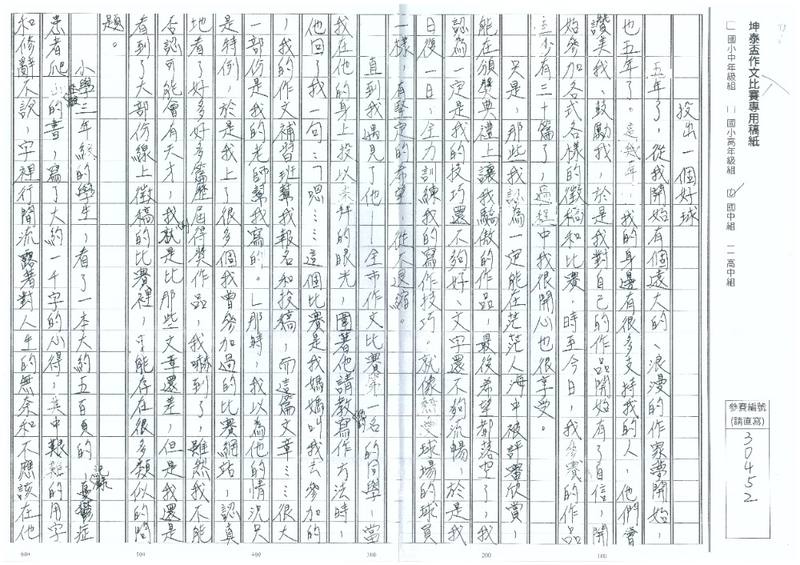 坤泰盃作文比賽專用稿紙
國小中年級組 國小高年級組 國中組 高中組
參賽編號
(請直寫)
30452
投出一個好球
五年了,從我開始有個遠大的、浪漫的作家夢開始,
也五年了。這幾年,我的身邊有很多支持我的人,他們會
讚美我、鼓勵我,於是我對自己的作品開始有了自信,開
始參加各式各樣的徵稿和比賽,時至今日,我參賽的作品
至少有三十篇了,過程中我很開心也很享受。
只是,那些我認為一定能在茫茫人海中被評審欣賞,
能在頒獎典禮上讓我驕傲的作品,最後希望都落空了,我
認為一定是我的技巧還不夠好、文字還不夠流暢,於是我
日復一日,全力訓練我的寫作技巧。就像熱愛球場的球員
一樣,有堅定的希望,從不退縮。
直到我遇見了他——全市作文比賽第一名的同學,當
我在他的身上投以崇拜的眼光,圍著他請教寫作方法時,
他回了我一句:「恩……這個比賽是我媽媽叫我去參加的
,我的作文補習班幫我報名和投稿,而這篇文章……很大
一部份是我的老師幫我寫的。」那時,我以為他的情況只
是特例,於是我上了很多個我曾參加過的比賽網站,認真
地看了好多好多篇歷屆得獎作品,我嚇到了,雖然我不能
否認可能會有天才,我的就是比那些文章還差,但是我還是
看到了大部份線上徵稿的比賽裡,可能存在很多類似的問
題。
小學三年級的學生,看了一本大約五百頁的
患者爬山的書,寫了大約一千字的心得,其中艱難的用字
和修辭不說,字裡行間流露著對人生的無奈和不應該在他
100
200
300
400
500
600